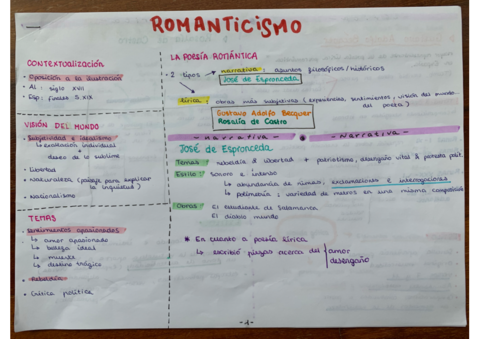 ROMANTICISMO
CONTEXTUALIZACIÓN
• Oposición a la ilustración
• Al : siglo XVII
• Esp: finales S. XIX
VISIÓN DEL MUNDO
• Subjetividad e idealismo
↳ exaltación individual
deseo de lo sublime
• Libertad
• Naturaleza (paisaje para explicar la inquietud)
• Nacionalismo
TEMAS
• Sentimientos apasionados
↳ amor apasionado
↳ belleza ideal
↳ muerte
↳ destino trágico
• Rebeldía
• Crítica política
LA POESÍA ROMÁNTICA
• 2 tipos → narrativa: asuntos filosóficos/históricos
José de Espronceda
lírica: obras más subjetivas (experiencias, sentimientos, visión del mundo
del poeta)
Gustavo Adolfo Bécquer
Rosalía de Castro
- Narrativa -
- Narrativa -
José de Espronceda
Temas: rebeldía & libertad + patriotismo, desengaño vital & protesta polít.
Estilo: Sonoro e intenso
↳ abundancia de rimas, exclamaciones e interrogaciones
↳ polimetría : variedad de metros en una misma composición
Obras: El estudiante de Salamanca
El diablo mundo
* En cuanto a poesía lírica
↳ escribió piezas acerca del { amor
desengaño
-1-